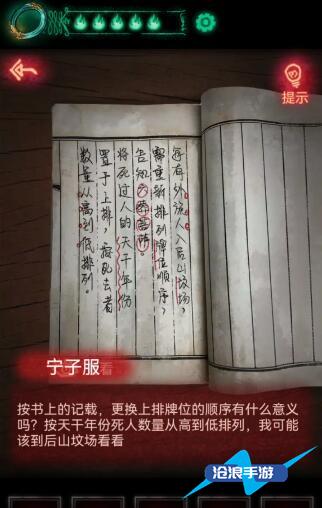 提示
每有外族人入后山坟场，
需重新排列牌位顺序，
告知六葬菩萨。
将死过人的天干年份
置于上排，按死去者
数量从高到低排列。
宁子服
按书上的记载，更换上排牌位的顺序有什么意义
吗？按天干年份死人数量从高到低排列，我可能
该到后山坟场看看
沧浪手游